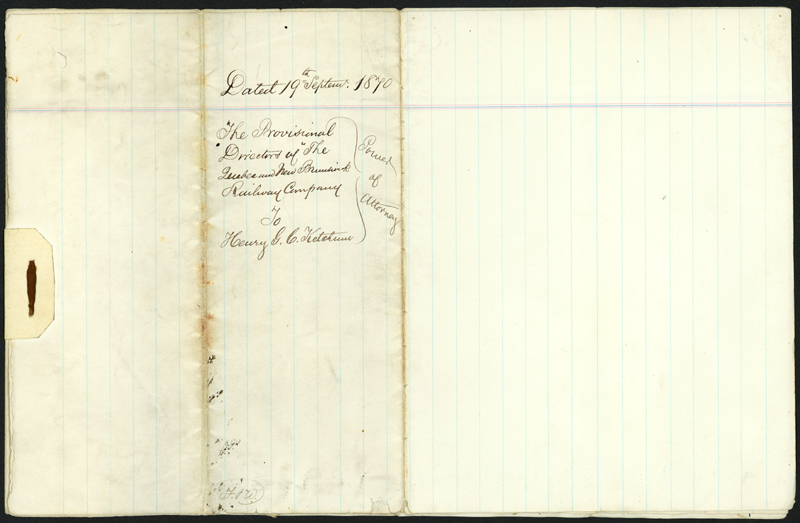 Dated 19th Septemr. 1870
The Provisional
Directors of "The
Quebec and New Brunswick
Railway Company
To
Henry G. C. Ketchum
Power
of
Attorney